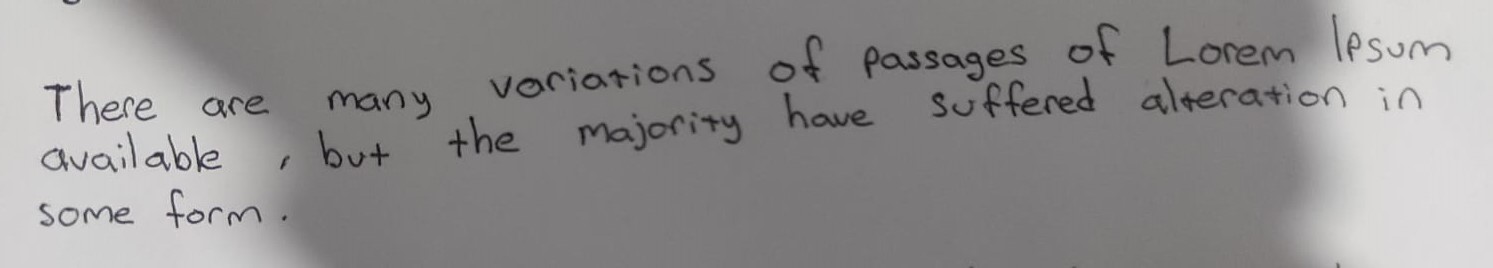 There are many variations of passages of Lorem Ipsum
available , but the majority have suffered alteration in
some form.